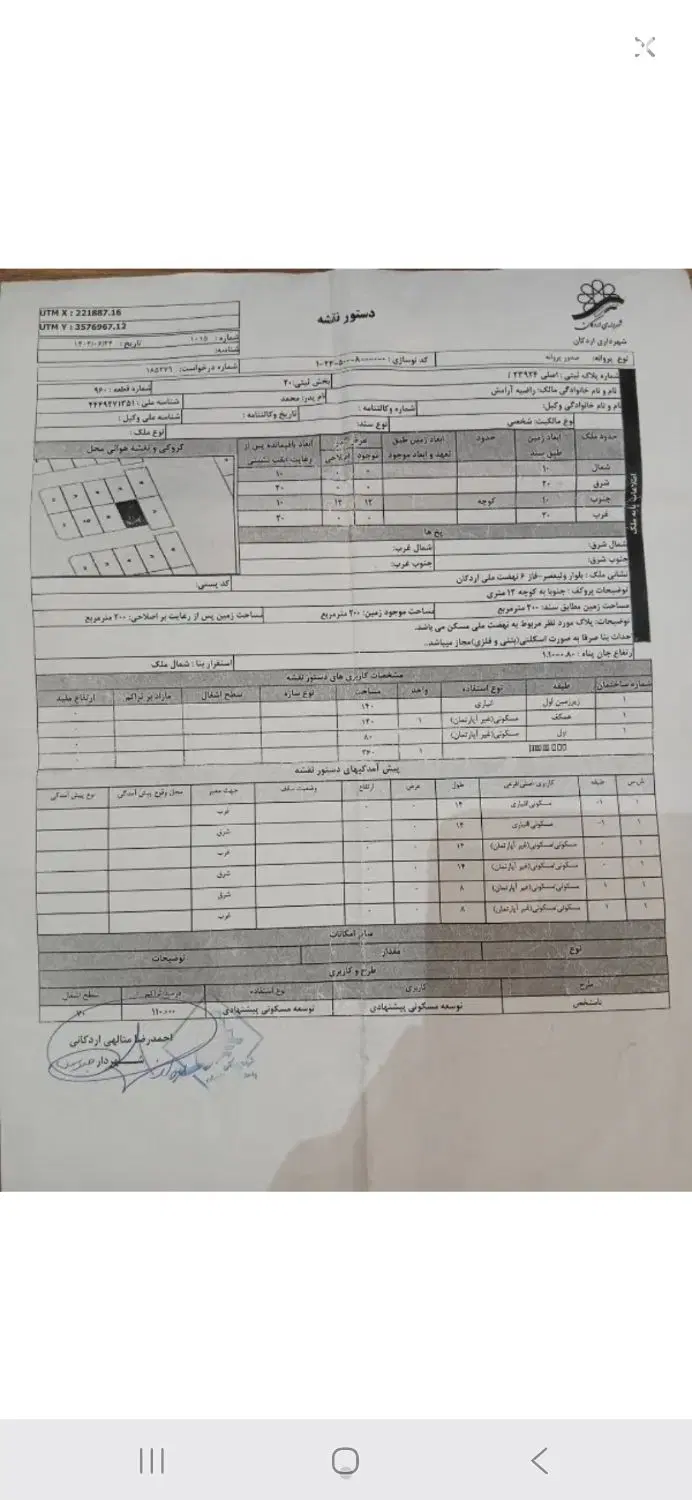 UTM X : 221887.16
UTM Y : 3576967.12
دستور نقشه
شهرداری اردکان
شماره: ۱۰۱۵
تاریخ:
شناسه:
نوع پروانه: صدور پروانه
کد نوسازی:
شماره درخواست: ۱۸۵۲۷۶
شماره پلاک ثبتی: اصلی
بخش ثبتی: ۲۰
شماره قطعه: ۹۶۰
نام و نام خانوادگی مالک: راضیه آرامش
نام پدر: محمد
شناسه ملی:
نام و نام خانوادگی وکیل:
شماره وکالتنامه:
تاریخ وکالتنامه:
شناسه ملی وکیل:
نوع مالکیت: شخصی
نوع سند:
نوع ملک:
حدود ملک ابعاد زمین طبق سند حدود ابعاد زمین طبق تعهد و ابعاد موجود موجود اصلاحی ابعاد باقیمانده پس از رعایت عقب نشینی
کروکی و نقشه هوائی محل
شمال ۱۰ ۱۰
شرق ۲۰ ۲۰
جنوب ۱۰ کوچه ۱۲ ۱۲ ۱۰
غرب ۲۰ ۲۰
اطلاعات پایه ملک
پخ ها
شمال شرق: شمال غرب:
جنوب شرق: جنوب غرب:
نشانی ملک: بلوار ولیعصر-فاز ۶ نهضت ملی اردکان
کد پستی:
توضیحات بروکف: جنوبا به کوچه ۱۲ متری
مساحت زمین مطابق سند: ۲۰۰ مترمربع مساحت موجود زمین: ۲۰۰ مترمربع مساحت زمین پس از رعایت بر اصلاحی: ۲۰۰ مترمربع
توضیحات: پلاک مورد نظر مربوط به نهضت ملی مسکن می باشد.
احداث بنا صرفا به صورت اسکلتی(بتنی و فلزی)مجاز میباشد..
ارتفاع جان پناه :
استقرار بنا : شمال ملک
مشخصات کاربری های دستور نقشه
شماره ساختمان طبقه نوع استفاده واحد مساحت نوع سازه سطح اشغال مازاد بر تراکم ارتفاع مفید
۱ زیرزمین اول انباری ۱۴۰ ۰
۱ همکف مسکونی(غیر آپارتمان) ۱ ۱۴۰ ۰
۱ اول مسکونی(غیر آپارتمان) ۸۰ ۰
۱ ۳۶۰ ۰
پیش آمدگیهای دستور نقشه
ش.س طبقه کاربری اصلی/فرعی طول عرض ارتفاع وضعیت سقف جهت معبر محل وقوع پیش آمدگی نوع پیش آمدگی
۱ ۱- مسکونی/انباری ۱۴ ۰ ۰ غرب
۱ ۱- مسکونی/انباری ۱۴ ۰ ۰ شرق
۱ ۰ مسکونی/مسکونی(غیر آپارتمان) ۱۴ ۰ ۰ غرب
۱ ۰ مسکونی/مسکونی(غیر آپارتمان) ۱۴ ۰ ۰ شرق
۱ ۱ مسکونی/مسکونی(غیر آپارتمان) ۸ ۰ ۰ شرق
۱ ۱ مسکونی/مسکونی(غیر آپارتمان) ۸ ۰ ۰ غرب
سایر امکانات
نوع مقدار توضیحات
طرح و کاربری
طرح کاربری نوع استفاده درصد تراکم سطح اشغال
نامشخص توسعه مسکونی پیشنهادی توسعه مسکونی پیشنهادی ۱۱۰.۰۰۰ ۷۰
احمدرضا متالهی اردکانی
شهردار